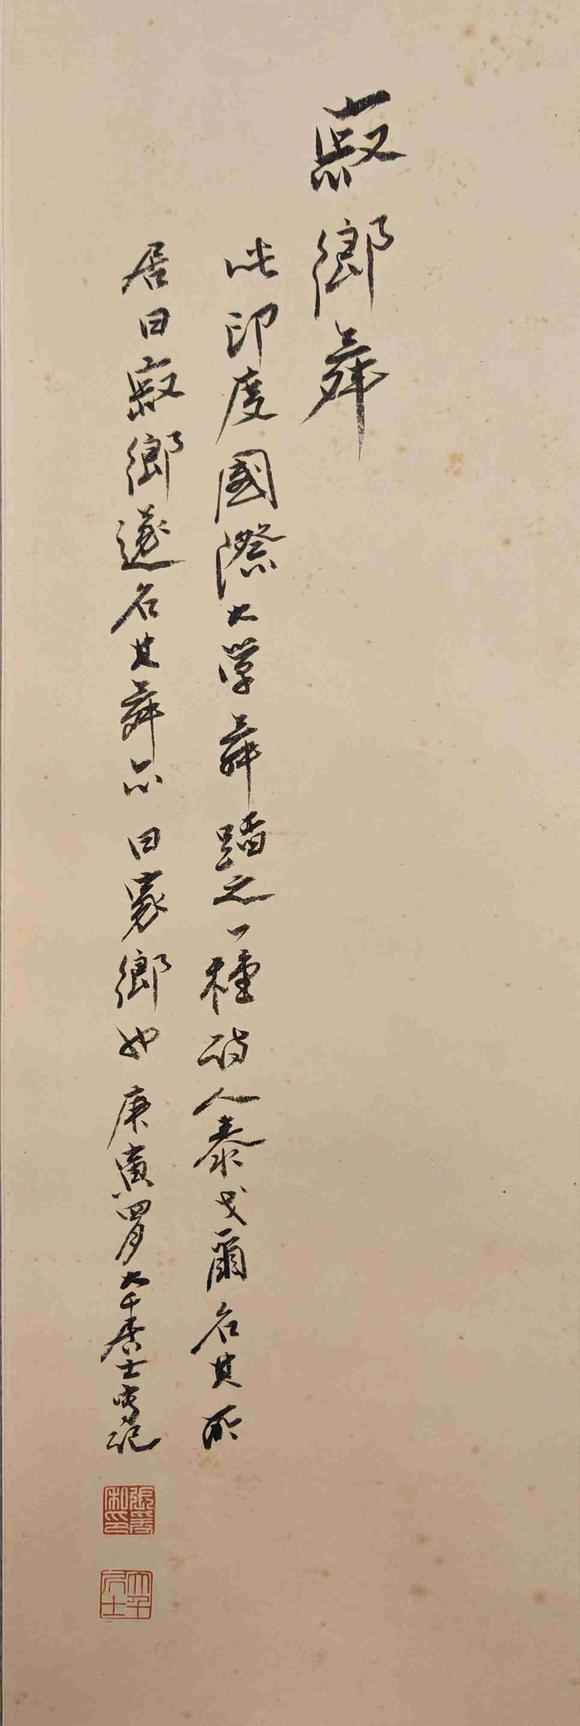 寂鄉舞
此印度國際大学舞蹈之一種詩人泰戈爾名其所
居曰寂鄉遂名其舞亦曰寂鄉也庚寅四月大千居士爰記
張爰私印
大千居士